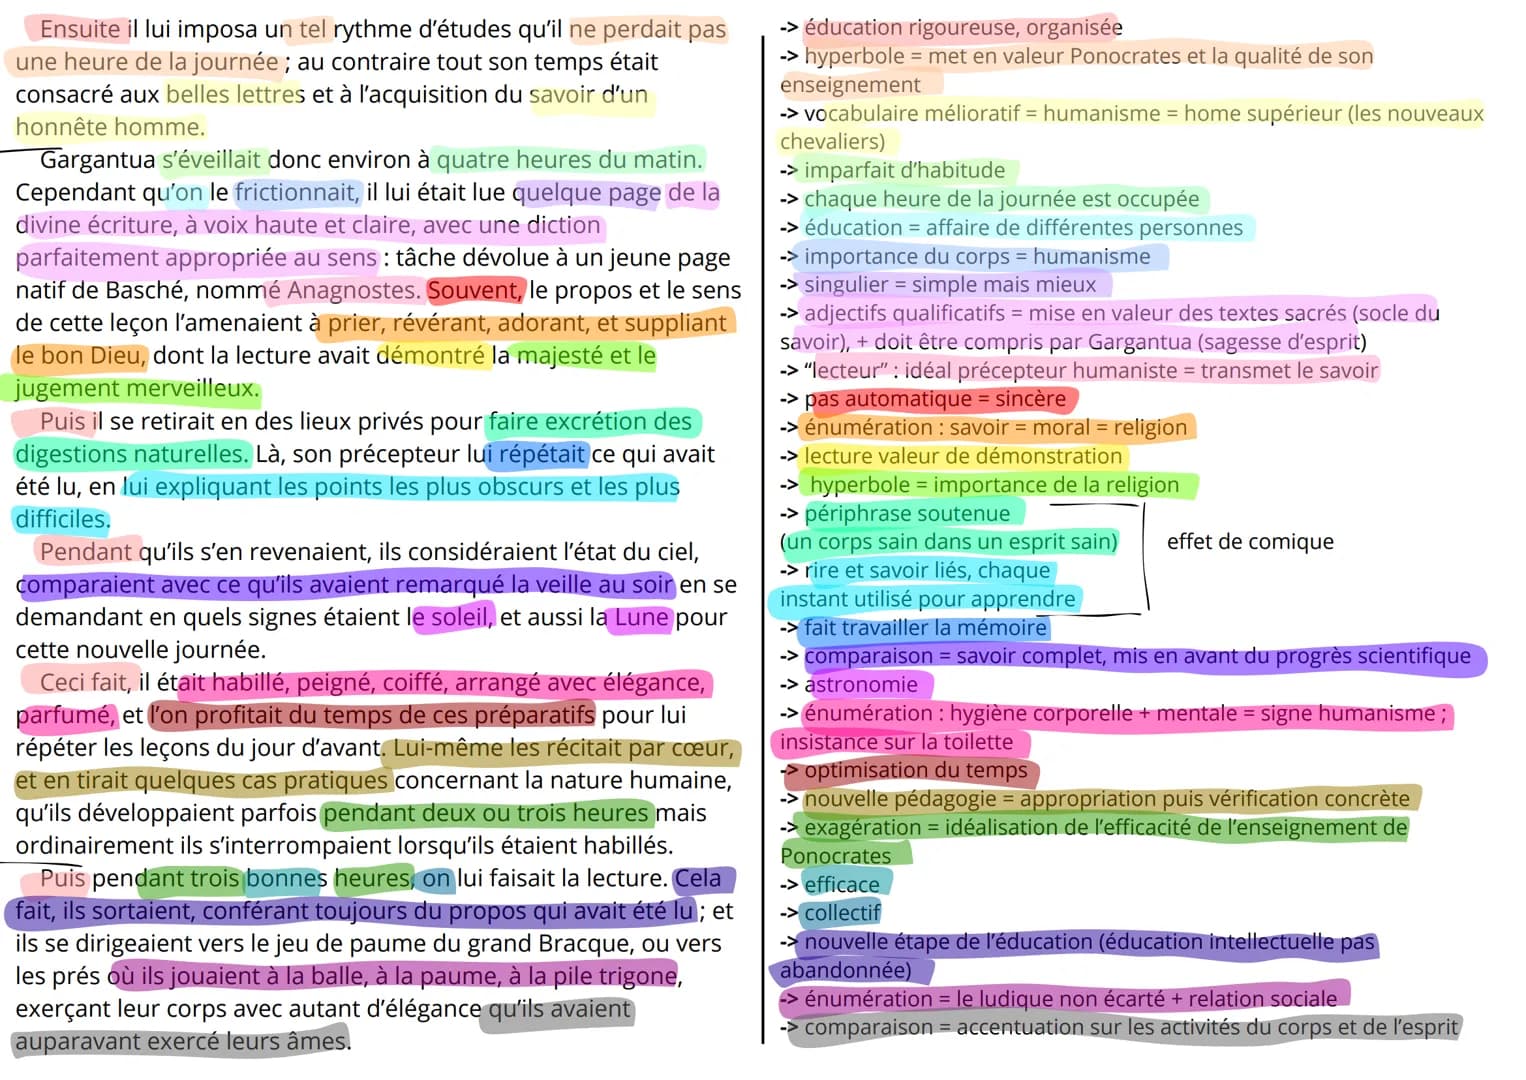 Ensuite il lui imposa un tel rythme d’études qu’il ne perdait pas
une heure de la journée ; au contraire tout son temps était
consacré aux belles lettres et à l’acquisition du savoir d’un
honnête homme.
Gargantua s’éveillait donc environ à quatre heures du matin.
Cependant qu’on le frictionnait, il lui était lue quelque page de la
divine écriture, à voix haute et claire, avec une diction
parfaitement appropriée au sens : tâche dévolue à un jeune page
natif de Basché, nommé Anagnostes. Souvent, le propos et le sens
de cette leçon l’amenaient à prier, révérant, adorant, et suppliant
le bon Dieu, dont la lecture avait démontré la majesté et le
jugement merveilleux.
Puis il se retirait en des lieux privés pour faire excrétion des
digestions naturelles. Là, son précepteur lui répétait ce qui avait
été lu, en lui expliquant les points les plus obscurs et les plus
difficiles.
Pendant qu’ils s’en revenaient, ils considéraient l’état du ciel,
comparaient avec ce qu’ils avaient remarqué la veille au soir en se
demandant en quels signes étaient le soleil, et aussi la Lune pour
cette nouvelle journée.
Ceci fait, il était habillé, peigné, coiffé, arrangé avec élégance,
parfumé, et l’on profitait du temps de ces préparatifs pour lui
répéter les leçons du jour d’avant. Lui-même les récitait par cœur,
et en tirait quelques cas pratiques concernant la nature humaine,
qu’ils développaient parfois pendant deux ou trois heures mais
ordinairement ils s’interrompaient lorsqu’ils étaient habillés.
Puis pendant trois bonnes heures, on lui faisait la lecture. Cela
fait, ils sortaient, conférant toujours du propos qui avait été lu ; et
ils se dirigeaient vers le jeu de paume du grand Bracque, ou vers
les prés où ils jouaient à la balle, à la paume, à la pile trigone,
exerçant leur corps avec autant d’élégance qu’ils avaient
auparavant exercé leurs âmes.
-> éducation rigoureuse, organisée
-> hyperbole = met en valeur Ponocrates et la qualité de son
enseignement
-> vocabulaire mélioratif = humanisme = home supérieur (les nouveaux
chevaliers)
-> imparfait d’habitude
-> chaque heure de la journée est occupée
-> éducation = affaire de différentes personnes
-> importance du corps = humanisme
-> singulier = simple mais mieux
-> adjectifs qualificatifs = mise en valeur des textes sacrés (socle du
savoir), + doit être compris par Gargantua (sagesse d’esprit)
-> “lecteur” : idéal précepteur humaniste = transmet le savoir
-> pas automatique = sincère
-> énumération : savoir = moral = religion
-> lecture valeur de démonstration
-> hyperbole = importance de la religion
-> périphrase soutenue
(un corps sain dans un esprit sain)
effet de comique
-> rire et savoir liés, chaque
instant utilisé pour apprendre
-> fait travailler la mémoire
-> comparaison = savoir complet, mis en avant du progrès scientifique
-> astronomie
-> énumération : hygiène corporelle + mentale = signe humanisme ;
insistance sur la toilette
-> optimisation du temps
-> nouvelle pédagogie = appropriation puis vérification concrète
-> exagération = idéalisation de l’efficacité de l’enseignement de
Ponocrates
-> efficace
-> collectif
-> nouvelle étape de l’éducation (éducation intellectuelle pas
abandonnée)
-> énumération = le ludique non écarté + relation sociale
-> comparaison = accentuation sur les activités du corps et de l’esprit